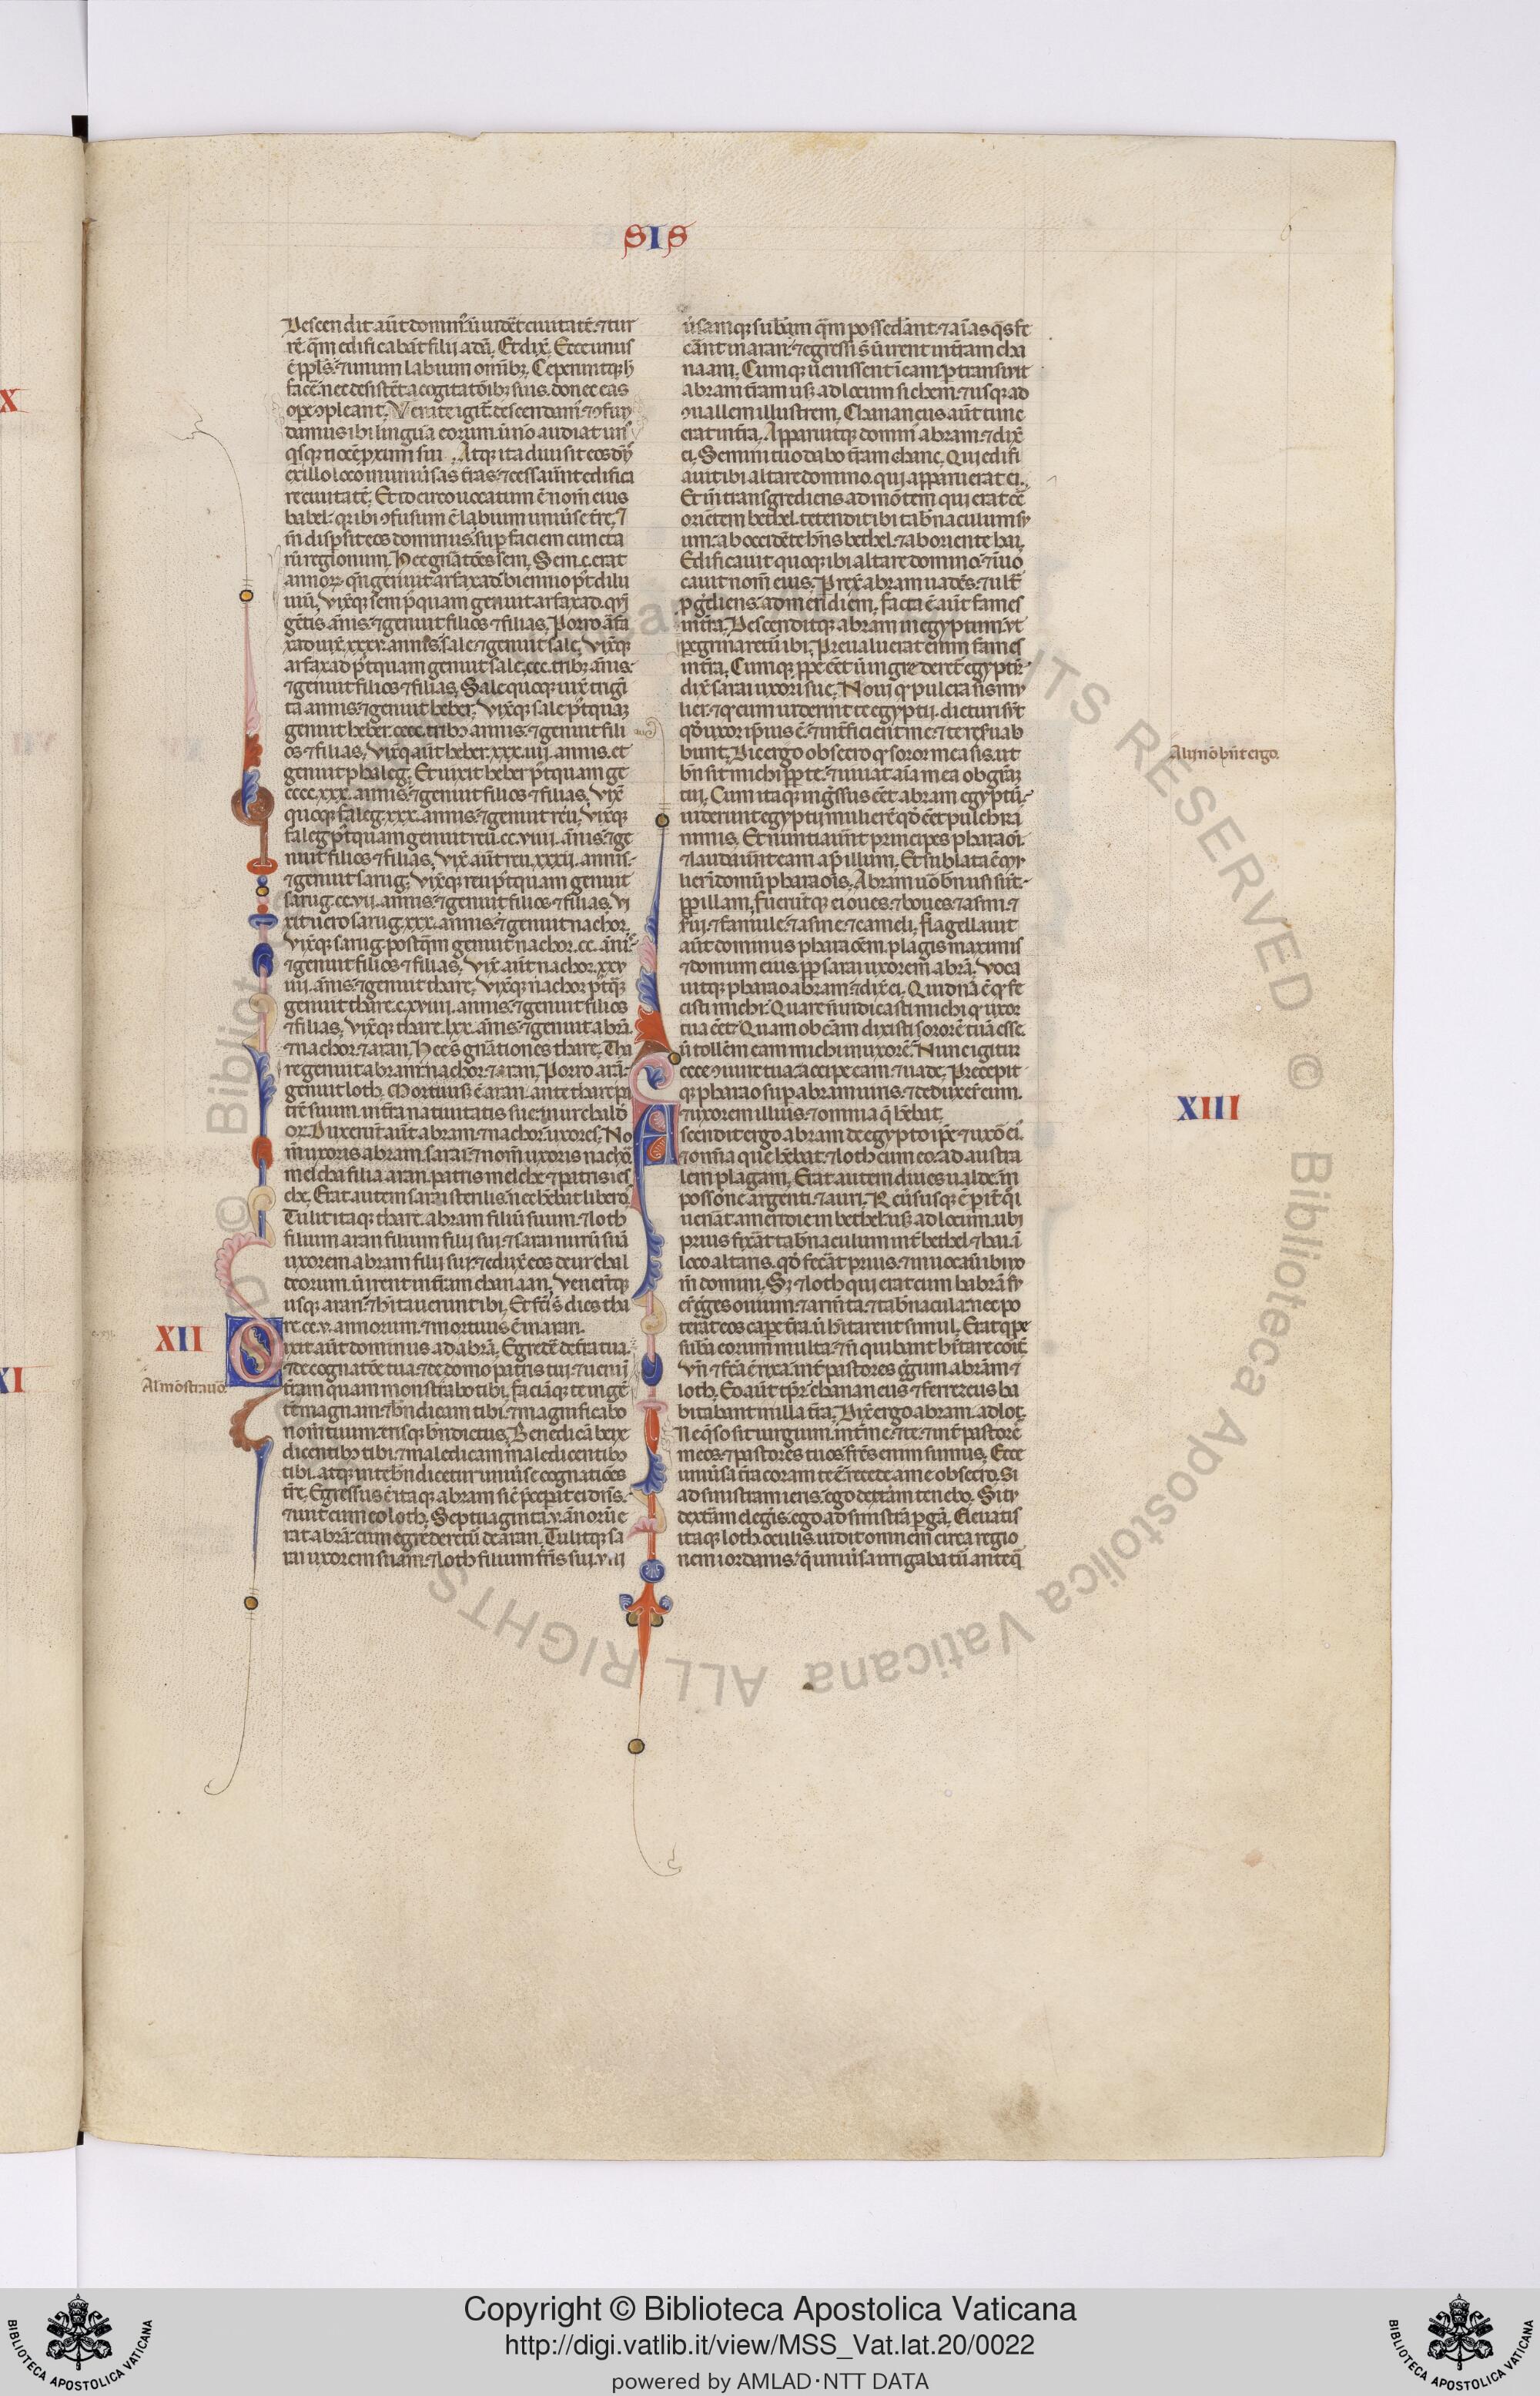 SIS
6
Descendit aūt domin᷒ ut uidēt ciuitatē ⁊ tur
rē q̄m edificabāt filij adā. Et dix̄. Ecce unus
ē ppl̄s ⁊ unum labium om̄ibꝫ. Ceperuntqꝫ h̄
facē. nec desistēt a cogitatōibꝫ suis. donec eas
ope ꝯpleant. Venite igit̄ descendam᷒ ⁊ ꝯfun
damus ibi linguā eorum. ut nō audiat un᷒
qisqꝫ uocē pxim̄i sui. Atqꝫ ita diuisit eos dn̄s
ex illo loco in uniūsas tr̄as. ⁊ cessauer̄nt edifica
re ciuitatē. Et idcirco uocatum ē nom̄ eius
babel. qr ibi ꝯfusum ē labium uniūse tr̄e. ⁊
in̄ dispsit eos dominus sup faciem cuncta
rū regionum. Hec gnātōes sem. Sem .c. erat
annorꝫ. qn̄ genuit arfaxad. biennio p̄t dilu
uiū. Vix̄qꝫ sem p̄quam genuit arfaxad. qn̄
gētis ānis. ⁊ genuit filios ⁊ filias. Porro arfa
xad uix̄ .xxxv. annis. sale ⁊ genuit sale. Vix̄qꝫ
arfaxad p̄tquam genuit sale .ccc. tribꝫ ānis.
⁊ genuit filios ⁊ filias. Sale quoqꝫ uix̄ trigī
ta annis. ⁊ genuit heber. Vix̄qꝫ sale p̄tquaꝫ
genuit heber .cccc. tribꝫ annis. ⁊ genuit fili
os ⁊ filias. Vix̄qꝫ aūt heber .xxx.iiij. annis. et
genuit phaleg. Et uixit heber p̄tquam ge
cccc.xxx. annis. ⁊ genuit filios ⁊ filias. Vix̄
quoqꝫ faleg .xxx. annis. ⁊ genuit reu. Vix̄qꝫ
faleg p̄tquam genuit reu .cc.viiii. ānis. ⁊ ge
nuit filios ⁊ filias. Vix̄ aūt reu .xxxii. annis.
⁊ genuit sarug. Vix̄qꝫ reu p̄tquam genuit
sarug .cc.vii. annis. ⁊ genuit filios ⁊ filias. Vi
xit uero sarug .xxx. annis. ⁊ genuit nachor.
Vix̄qꝫ sarug postq̄m genuit nachor .cc. ānis
⁊ genuit filios ⁊ filias. Vix̄ aūt nachor .xxv
iiij. ānis. ⁊ genuit thare. Vix̄qꝫ nachor p̄tq̄
genuit thare .c.xviiij. annis. ⁊ genuit filios
⁊ filias. Vix̄qꝫ thare .lxx. ānis. ⁊ genuit abrā.
⁊ nachor. ⁊ aran. Hec s̄ gnātiones thare. Tha
re genuit abram. nachor. ⁊ aran. Porro arā
genuit loth. Mortuusqꝫ ē aran. ante thare pa
trē suum. in tr̄a natiuitatis sue. in ur chaldeo
orꝫ. Duxer̄nt aūt abram. ⁊ nachor. uxores. No
m̄ uxoris abram. sarai. ⁊ nom̄ uxoris nachor
melcha filia aran. patris melche ⁊ patris ies
che. Erat autem sarai sterilis. nec hēbat liberos.
Tulit itaqꝫ thare. abram filiū suum. ⁊ loth
filium aran filium filij sui. ⁊ sarai nurū suā
uxorem abram filij sui. ⁊ edux̄ eos de ur chal
deorum. ut irent in tr̄am chanaan. Venerūtqꝫ
usqꝫ aran. ⁊ hītauerunt ibi. Et fct̄i s̄ dies tha
re .cc.v. annorum. ⁊ mortuus ē in aran.
XII
Dixit aūt dominus ad abrā. Egredē de tr̄a tua
⁊ de cognatōe tua. ⁊ de domo patris tui. ⁊ ueni ī
Al mōstrauo.
tr̄am quam monstrabo tibi. faciāqꝫ te in gē
tē magnam. ⁊ bn̄dicam tibi. ⁊ magnificabo
nom̄ tuum. erisqꝫ bn̄dictus. Benedicā bn̄dixe
dicentibꝫ tibi. ⁊ maledicam maledicentibꝫ
tibi. atqꝫ in te bn̄dicentur uniūse cognatiōes
tr̄e. Egressus ē itaqꝫ abram sic̄ p̄cepit ei dn̄s.
⁊ iuit cum eo loth. Septuaginta v. ānorū e
rat abrā. cum egrederetū de aran. Tulitqꝫ sa
rai uxorem suam. ⁊ loth filium fr̄is sui. uni
ūsamqꝫ subam̄ q̄m possederant. ⁊ aīas q̄s fe
cant in aran. ⁊ egressi s̄ ut irent in tr̄am cha
naam. Cumqꝫ uenissent ī eam. ptransiuit
abram tr̄am usqꝫ ad locum sichem. ⁊ usqꝫ ad
ꝯuallem illustrem. Chananeus aūt tunc
erat in tr̄a. Apparuitqꝫ domin᷒ abram. ⁊ dix̄
ei. Semini tuo dabo tr̄am hanc. Qui edifi
auit ibi altare domino. qui apparuerat ei.
Et in̄ transgrediens ad mōtem qui erat ꝯ
oriētem bethel. tetendit ibi tabn̄aculum su
um. ab occidēte hn̄s bethel. ⁊ ab oriente hai.
Edificauit quoqꝫ ibi altare domino. ⁊ īuo
cauit nom̄ eius. Prex̄ abram uadēs. ⁊ ult̄
pgrediens ad meridiem. facta ē aūt fames
in tr̄a. Descenditqꝫ abram in egyptum. ut
pegrinaretū ibi. Preualuerat enim fames
in tr̄a. Cumqꝫ ppe eēt ut ingrederet̄ egyptū.
dix̄ sarai uxori sue. Noui qꝫ pulcra sis mu
lier. ⁊ qꝫ cum uiderint te egyptij. dicturi sūt
qd̄ uxor ipsius ē. ⁊ int̄ficient me. ⁊ te reseruab
bunt. Dic ergo obsecro qꝫ soror mea sis. ut
Alij nō hn̄t ergo.
bn̄ sit michi ppt te. ⁊ uiuat aīa mea ob gr̄aꝫ
tui. Cum itaqꝫ ingressus eēt abram egyptū.
uiderunt egyptij mulierē qd̄ eēt pulchra
nimis. Et nuntiauerūt principes pharaoi.
⁊ laudauer̄nt eam apd illum. Et sublata ē mu
lier in domū pharaois. Abram uō bn̄ usi sūt.
pp illam. fuerūtqꝫ ei oues ⁊ boues ⁊ asini. ⁊
s̄ui. ⁊ famule. ⁊ asine. ⁊ cameli. flagellauit
aūt dominus pharaoēm. plagis maximis
⁊ domum eius. pp sarai uxorem abrā. Voca
uitqꝫ pharao abram. ⁊ dix̄ ei. Quid nā ē qꝫ fe
cisti michi? Quare n̄ indicasti michi qꝫ uxor
tua eēt? Quam ob cām dixisti sororē tuā esse
ut tollem̄ eam michi in uxorē? Nunc igitur
ecce ꝯiunx tua. accipe eam. ⁊ uade. Precepit
qꝫ pharao sup abram uiris. ⁊ deduxer̄t eum.
⁊ uxorem illius. ⁊ omnia q̄ hēbat.
XIII
Ascendit ergo abram de egypto ip̄e ⁊ uxō ei᷒.
⁊ omīa que hēbat. ⁊ loth cum eo. ad austra
lem plagam. Erat autem diues ualde. in
possōne argenti. ⁊ auri. Reūsusqꝫ ē p it̄ q̊
uenāt. a meridie in bethel. usqꝫ ad locum. ubi
prius fixāt tabn̄aculum int̄ bethel ⁊ hai. ī
loco altaris. qd̄ fecāt prius. ⁊ inuocauit ibi no
m̄ domini. Sꝫ ⁊ loth qui erat cum habrā fu
er̄t greges ouium. ⁊ arm̄ta. ⁊ tabn̄acula. nec po
terāt eos cape tr̄a. ut hītarent simul. Erat qꝫpe
sub̄a eorum multa. ⁊ n̄ quibant hītare coīt̄.
Vn̄ ⁊ fct̄a ē rixa. int̄ pastores gregum abrām ⁊
loth. Eo aūt tp̄r. chananeus ⁊ ferrezeus ha
bitabant in illa tr̄a. Dix̄ ergo abram. ad lot.
Ne q̄so sit iurgium. int̄ me. ⁊ te. ⁊ int̄ pastorē
meos. ⁊ pastores tuos. fr̄es enim sumus. Ecce
uniūsa tr̄a coram te ē. recede a me obsecro. Si
ad sinistram ieris. ego dextām tenebo. Si tu
dextām elegīs. ego ad sinistrā pgā. Eleuatis
itaqꝫ loth oculis. uidit omnem circa regio
nem iordanis. q̄ uniūsa irrigabatū anteq̄
Copyright © Biblioteca Apostolica Vaticana
http://digi.vatlib.it/view/MSS_Vat.lat.20/0022
powered by AMLAD·NTT DATA